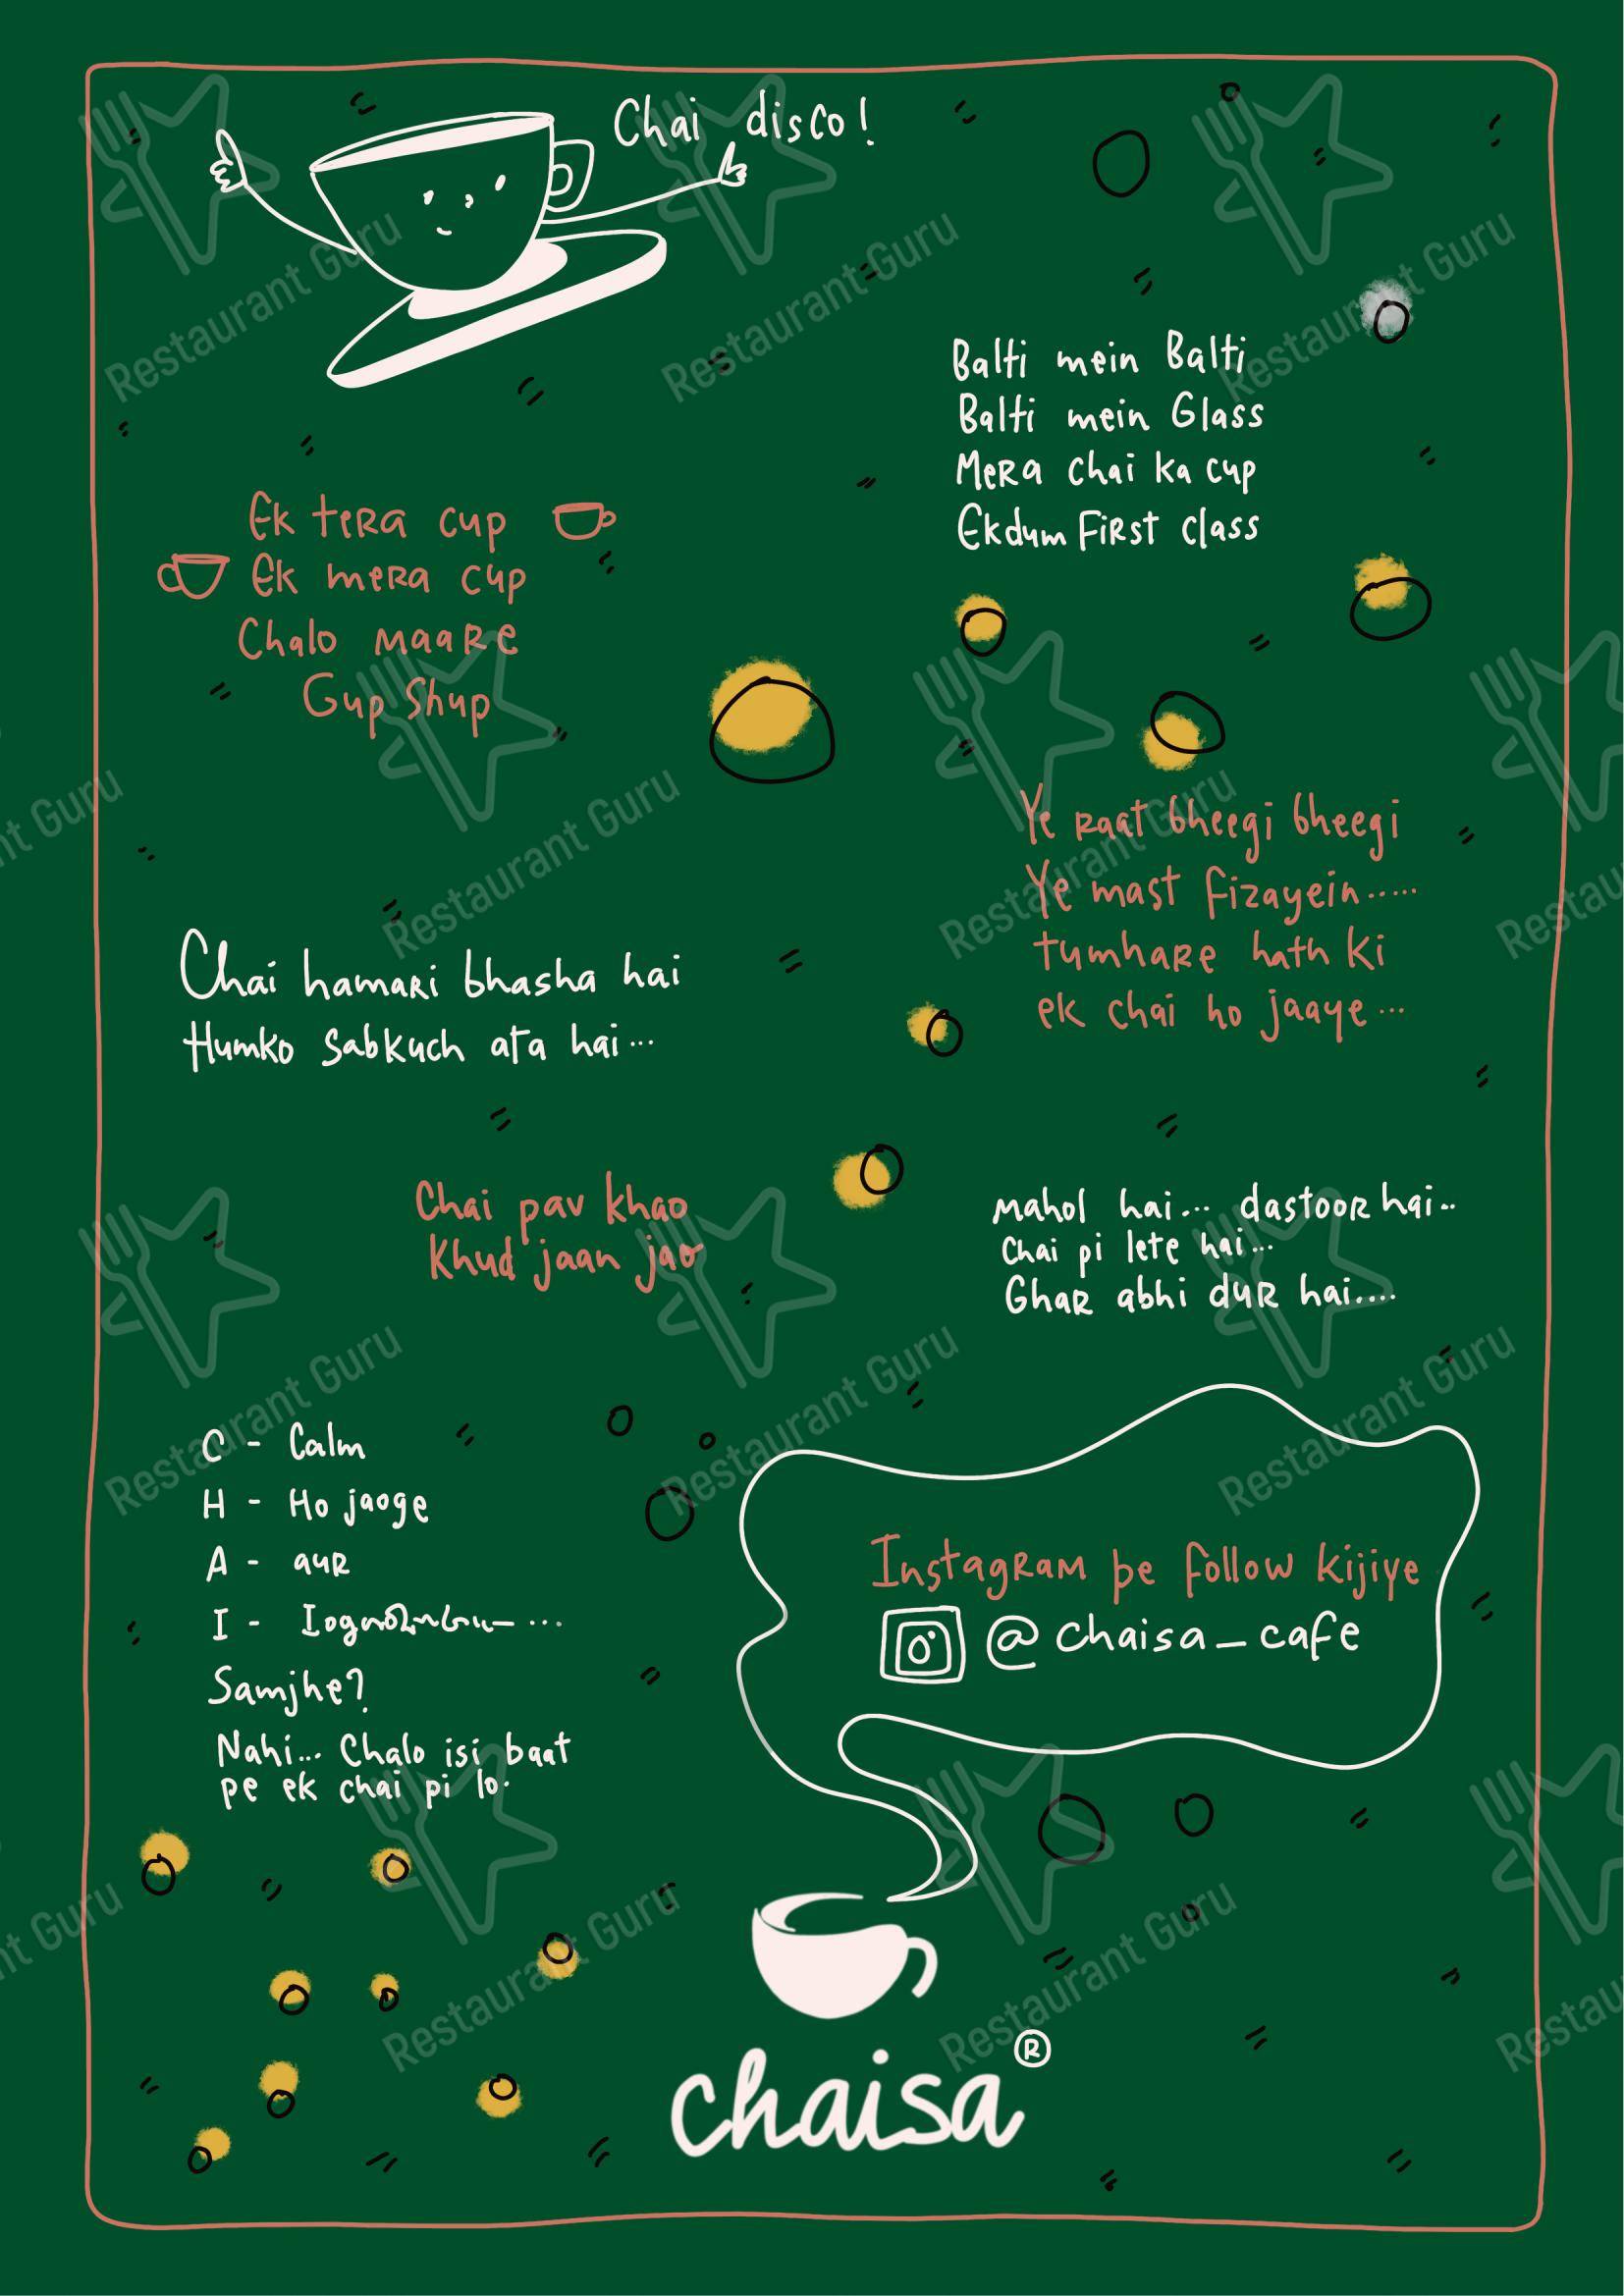 Chai disco!
Balti mein Balti
Balti mein Glass
Mera chai ka cup
Ekdum First class
Ek tera cup
Ek mera cup
Chalo maare
Gup Shup
Ye raat bheegi bheegi
Ye mast fizayein.....
tumhare hath ki
ek chai ho jaaye...
Chai hamari bhasha hai
Humko Sabkuch ata hai...
Chai pav khao
Khud jaan jao
Mahol hai... dastoor hai..
Chai pi lete hai...
Ghar abhi dur hai....
C - Calm
H - Ho jaoge
A - aur
I -
Samjhe?
Nahi... Chalo isi baat
pe ek chai pi lo.
Instagram pe follow kijiye
@chaisa_cafe
chaisa®
Restaurant Guru